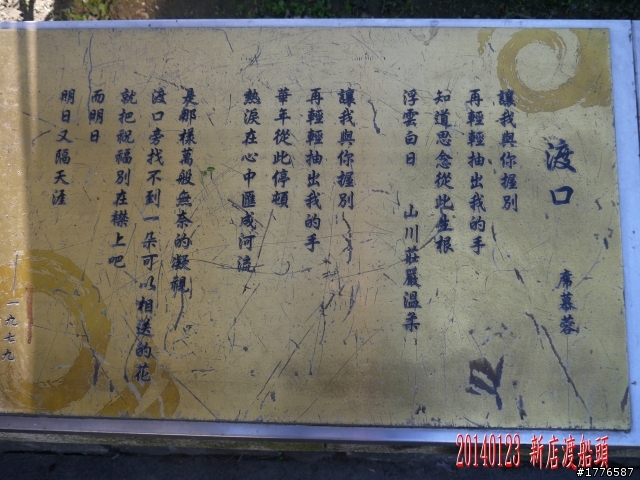 渡口
席慕蓉
讓我與你握別
再輕輕抽出我的手
知道思念從此生根
浮雲白日　山川莊嚴溫柔
讓我與你握別
再輕輕抽出我的手
華年從此停頓
熱淚在心中匯成河流
是那樣萬般無奈的凝視
渡口旁找不到一朵可以相送的花
就把祝福別在襟上吧
而明日
明日又隔天涯
一九七九
20140123 新店渡船頭
#1776587